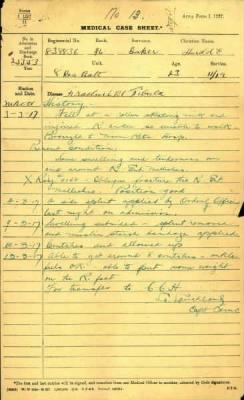 No 12.
Army Form I. 1237.
MEDICAL CASE SHEET.*
No. in Admission and Discharge Book
Regimental No.
Rank.
Surname.
Christian Name.
838836
Pte
Baker
Unit.
Age.
Service.
8 Res Batt
23
11/12
Station and Date.
Disease Fractured Rt Fibula
History.
3-3-17 Fell at a roller skating rink and
injured R. ankle so unable to walk
Brought to Hosp.
Present Condition.
Some swelling and tenderness on
and around R. Ext Malleolus.
X Ray Oblique fracture thro R Ext
Malleolus. Position good
side splint applied by Orderly Officer
last night on admission.
Swelling subsided - splint removed
and strap bandage applied
10-3-17 Crutches and allowed up
13-3-17 Able to get around on crutches - ankle
feels O.K. able to put some weight
on the R. foot
For transfer to C C H
Capt CAMC
*The first and last entries will be signed, and transfers from one Medical Officer to another, attested by their Signatures.